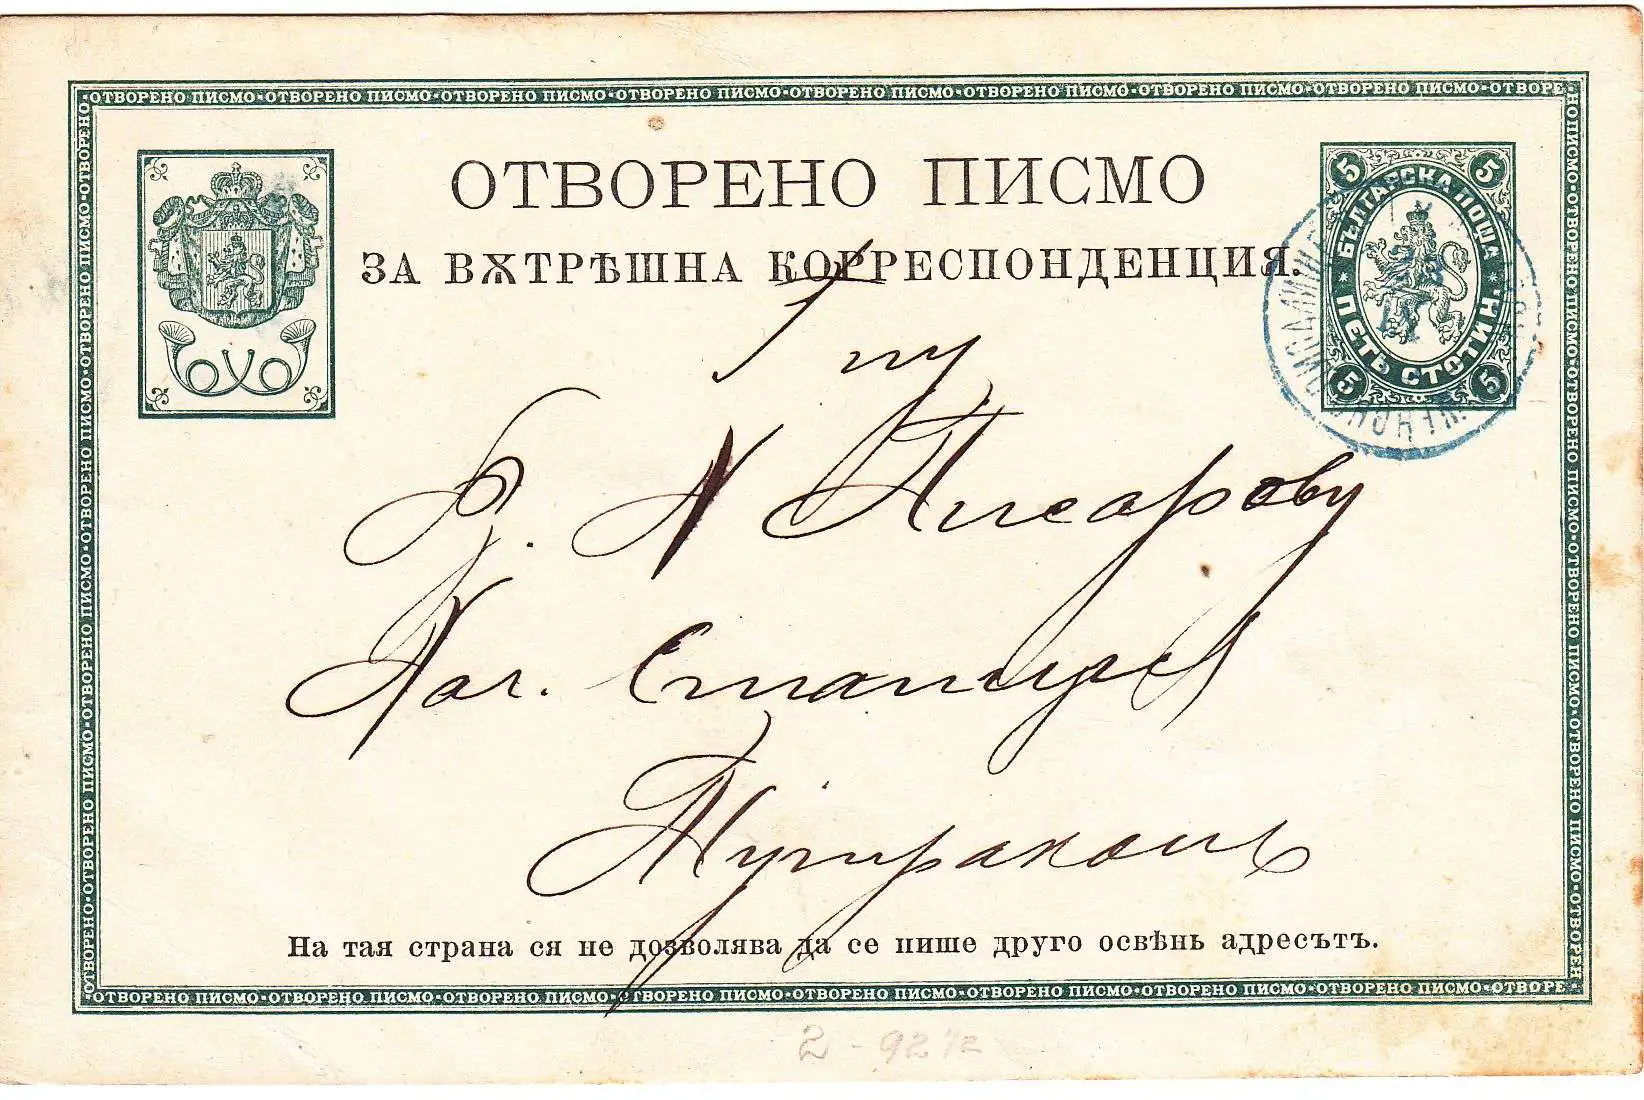 ОТВОРЕНО ПИСМО·ОТВОРЕНО ПИСМО·ОТВОРЕНО ПИСМО·ОТВОРЕНО ПИСМО·ОТВОРЕНО ПИСМО·ОТВОРЕНО ПИСМО·ОТВОРЕНО ПИСМО·ОТВОРЕНО ПИСМО·ОТВОРЕ
ОТВОРЕНО ПИСМО
ЗА ВѪТРѢШНА КОРРЕСПОНДЕНЦИЯ.
5 5
БЪЛГАРСКА ПОЩА
ПЕТЬ СТОТИНКИ
5 5
Г-ну
Н Писарову
Станция
Тутраканъ
На тая страна ся не дозволява да се пише друго освѣнь адресътъ.
ОТВОРЕНО ПИСМО·ОТВОРЕНО ПИСМО·ОТВОРЕНО ПИСМО·ОТВОРЕНО ПИСМО·ОТВОРЕНО ПИСМО·ОТВОРЕНО ПИСМО·ОТВОРЕНО ПИСМО·ОТВОРЕНО ПИСМО·ОТВОРЕ
2-92